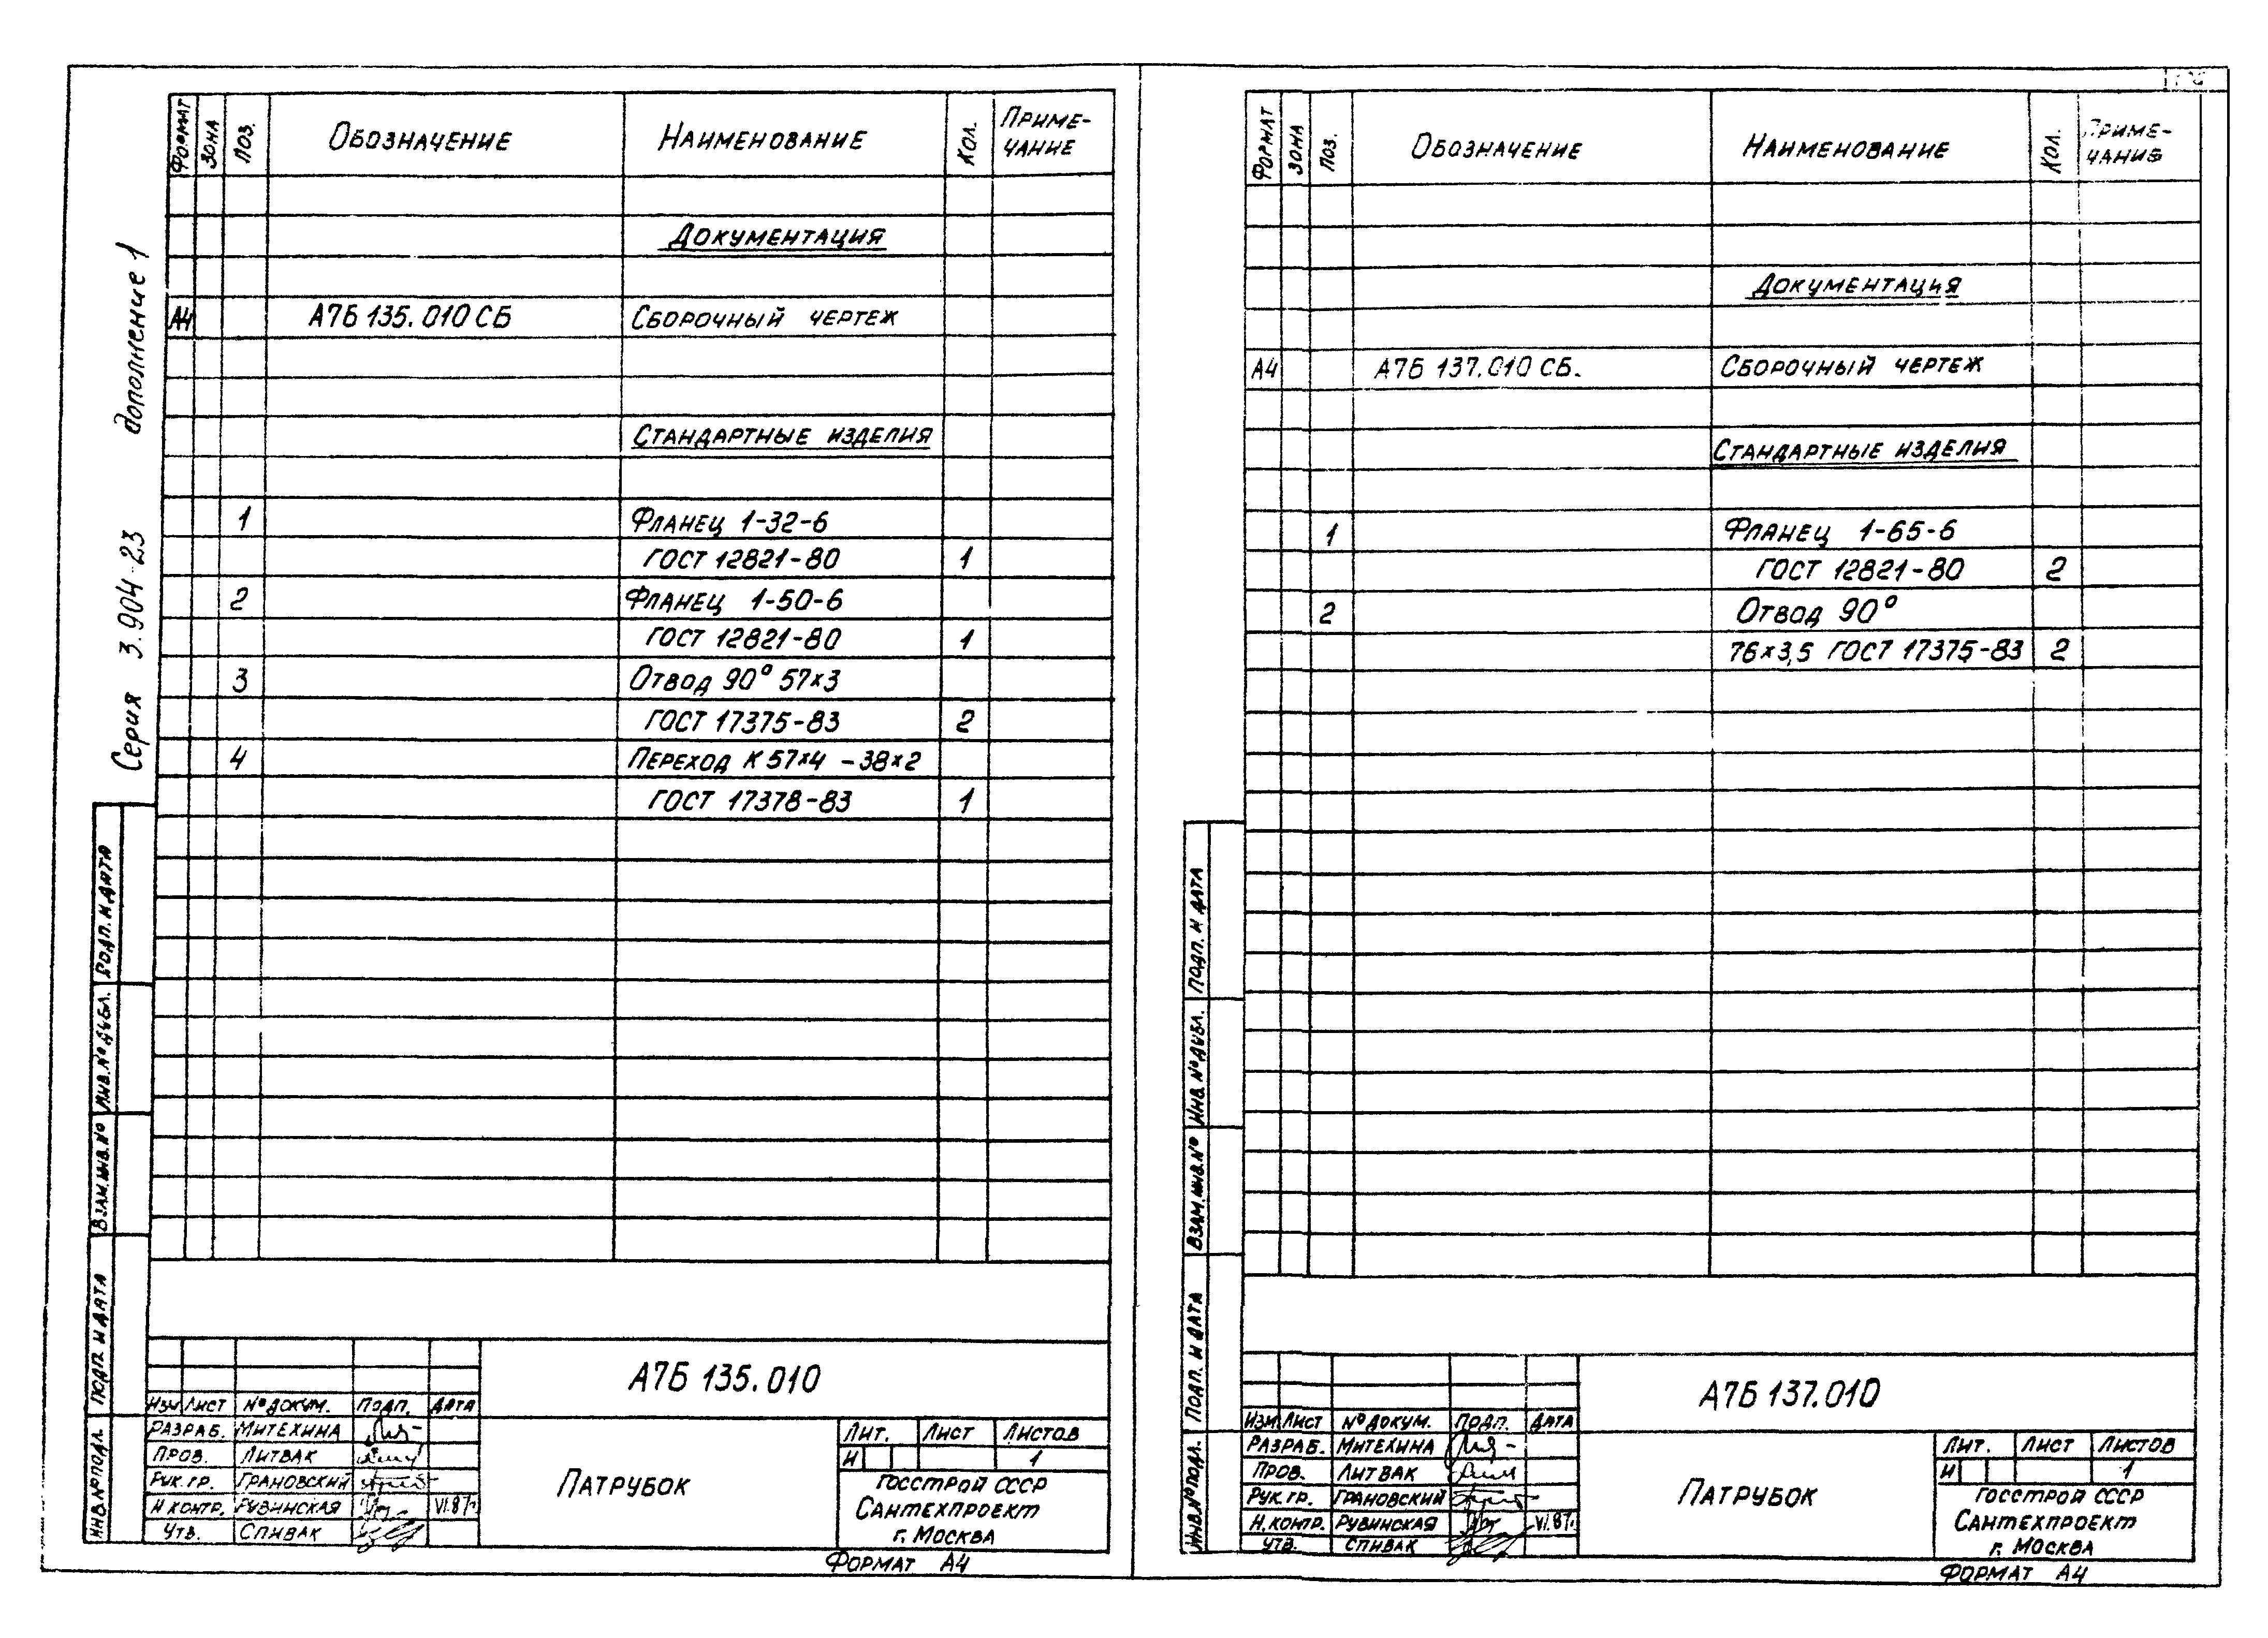 Серия 3.904-23 дополнение 1
Формат Зона Поз. Обозначение Наименование Кол. Приме-
чание
Документация
А4 А7Б 135.010 СБ Сборочный чертеж
Стандартные изделия
1 Фланец 1-32-6
ГОСТ 12821-80 1
2 Фланец 1-50-6
ГОСТ 12821-80 1
3 Отвод 90° 57×3
ГОСТ 17375-83 2
4 Переход К 57×4 -38×2
ГОСТ 17378-83 1
Подп. и дата
Инв. № дубл.
Взам. инв. №
Подп. и дата
Инв. № подл.
А7Б 135.010
Изм Лист № докум. Подп. Дата
Разраб. Митехина
Пров. Литвак
Рук. гр. Грановский
Н. контр. Рувинская VI.87г
Утв. Спивак
Патрубок
Лит. Лист Листов
И 1
Госстрой СССР
Сантехпроект
г. Москва
Формат А4
Формат Зона Поз. Обозначение Наименование Кол. Приме-
чание
Документация
А4 А7Б 137.010 СБ. Сборочный чертеж
Стандартные изделия
1 Фланец 1-65-6
ГОСТ 12821-80 2
2 Отвод 90°
76×3,5 ГОСТ 17375-83 2
Подп. и дата
Инв. № дубл.
Взам. инв. №
Подп. и дата
Инв. № подл.
А7Б 137.010
Изм Лист № докум. Подп. Дата
Разраб. Митехина
Пров. Литвак
Рук. гр. Грановский
Н. контр. Рувинская VI.87г
Утв. Спивак
Патрубок
Лит. Лист Листов
И 1
Госстрой СССР
Сантехпроект
г. Москва
Формат А4